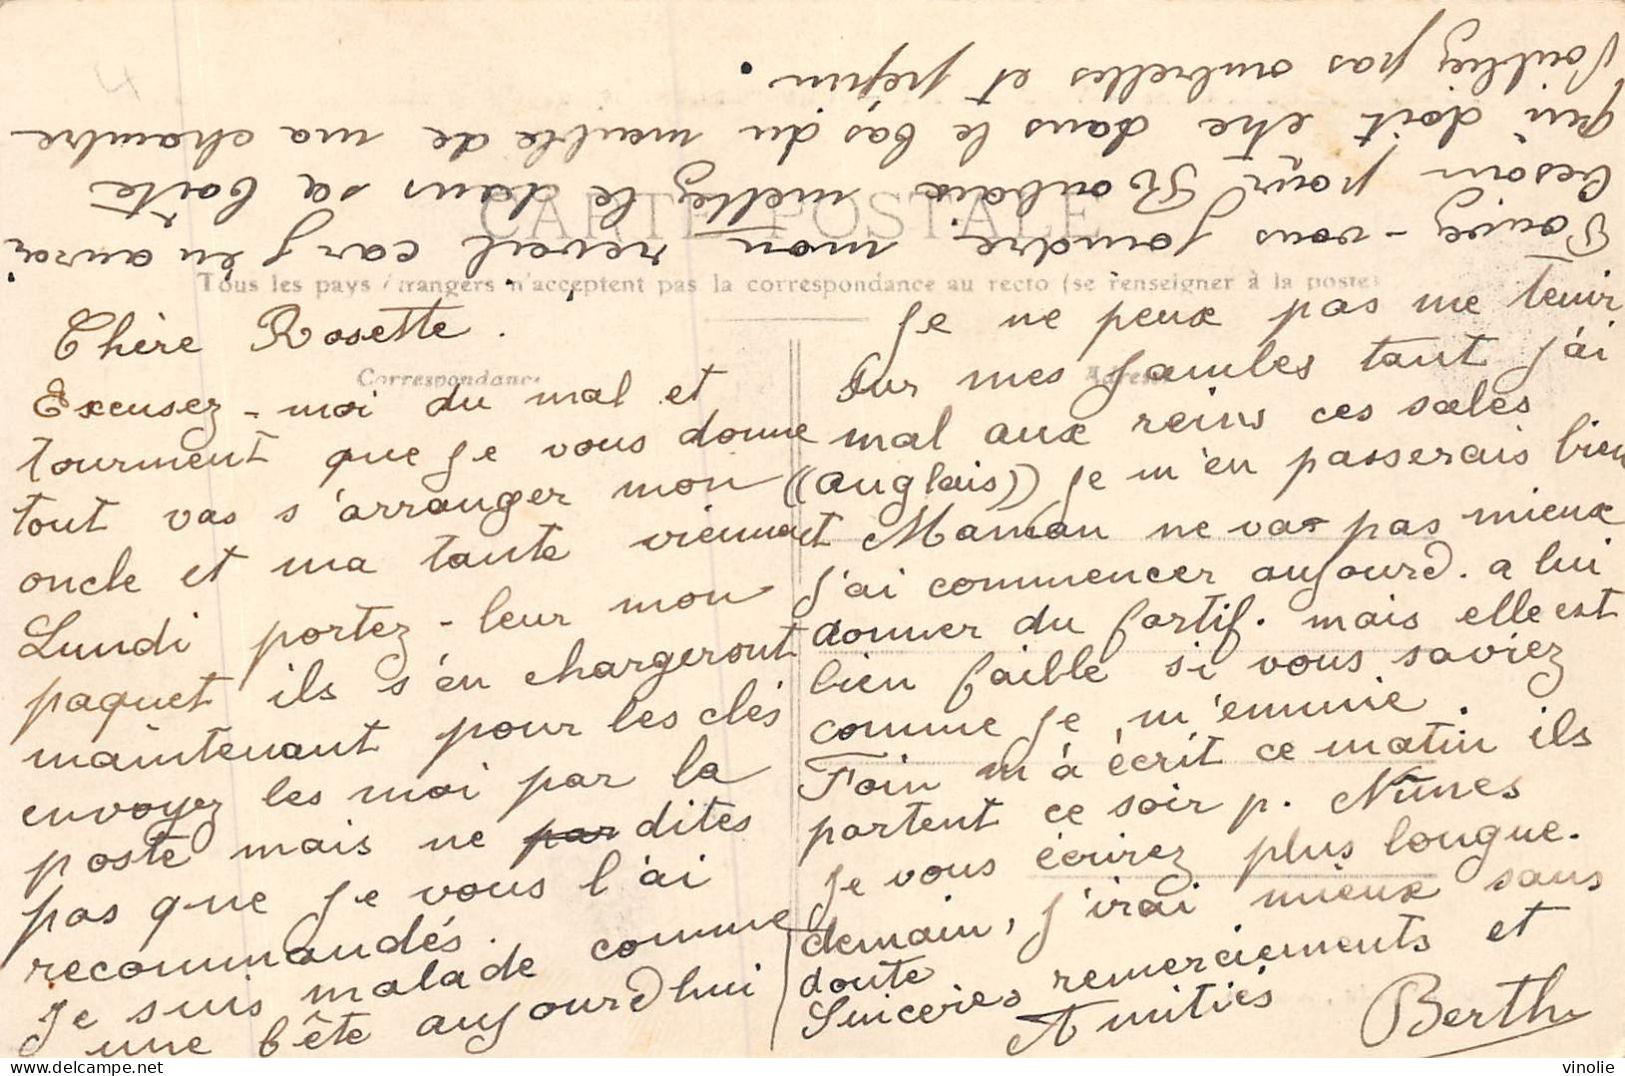 CARTE POSTALE
Tous les pays étrangers n'acceptent pas la correspondance au recto (se renseigner à la poste)
Correspondance
Adresse
Chère Rosette.
Excusez-moi du mal et
tourment que je vous donne
tout vas s'arranger mon
oncle et ma tante viennent
Lundi portez-leur mon
paquet ils s'en chargeront
maintenant pour les clés
envoyez les moi par la
poste mais ne par dites
pas que je vous l'ai
recommandés.
Je suis malade comme
une bête aujourd'hui
Je ne peux pas me tenir
sur mes jambes tant j'ai
mal aux reins ces sales
((anglais)) je m'en passerais bien
Maman ne vas pas mieux
j'ai commencer aujourd. a lui
donner du fortif. mais elle est
bien faible si vous saviez
comme je m'ennuie.
m'a écrit ce matin ils
partent ce soir p. Nîmes
Je vous écrirez plus longue.
demain, j'irai mieux sans
doute
Sincères remerciements et
Amitiés Berthe
Pouvez-vous joindre mon reveil car j'en aurai
besoin pour Roubaix mettez le dans sa boite
qui doit etre dans le bas du meuble de ma chambre
J'oubliez pas ombrelles et pépin.
4
vinolie